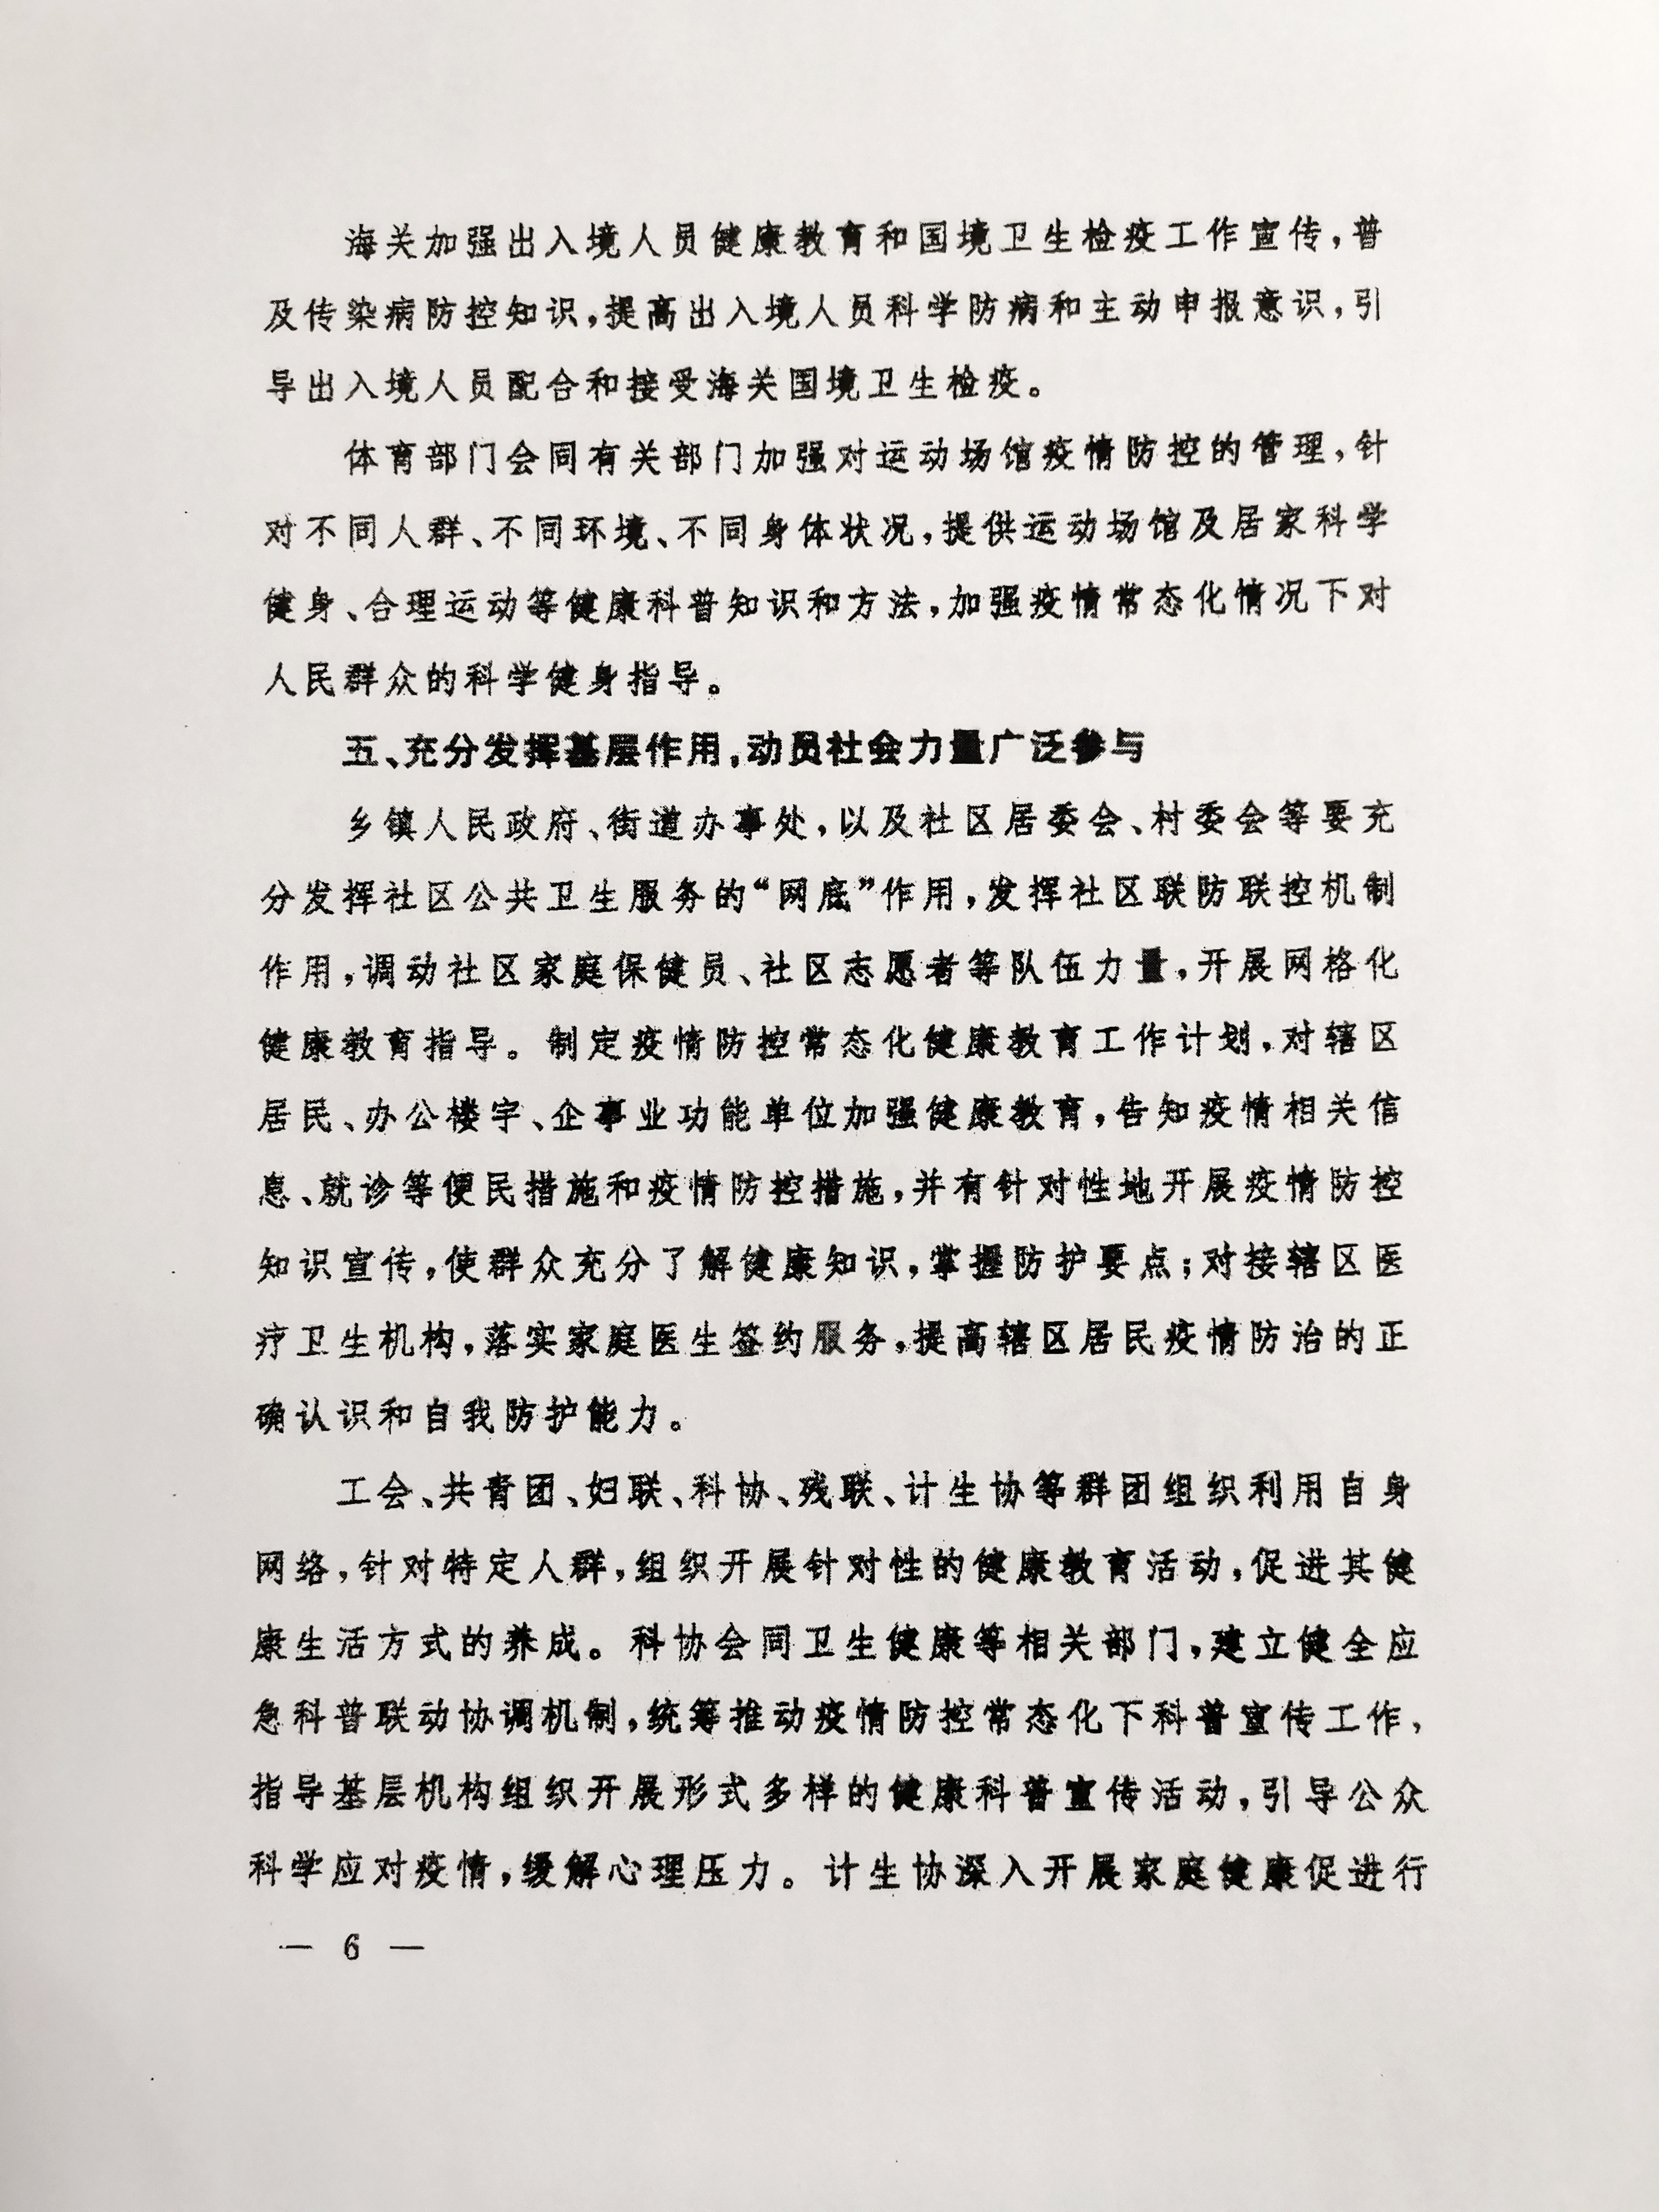 海关加强出入境人员健康教育和国境卫生检疫工作宣传，普
及传染病防控知识，提高出入境人员科学防病和主动申报意识，引
导出入境人员配合和接受海关国境卫生检疫。
体育部门会同有关部门加强对运动场馆疫情防控的管理，针
对不同人群、不同环境、不同身体状况，提供运动场馆及居家科学
健身、合理运动等健康科普知识和方法，加强疫情常态化情况下对
人民群众的科学健身指导。
五、充分发挥基层作用，动员社会力量广泛参与
乡镇人民政府、街道办事处，以及社区居委会、村委会等要充
分发挥社区公共卫生服务的“网底”作用，发挥社区联防联控机制
作用，调动社区家庭保健员、社区志愿者等队伍力量，开展网格化
健康教育指导。制定疫情防控常态化健康教育工作计划，对辖区
居民、办公楼宇、企事业功能单位加强健康教育，告知疫情相关信
息、就诊等便民措施和疫情防控措施，并有针对性地开展疫情防控
知识宣传，使群众充分了解健康知识，掌握防护要点；对接辖区医
疗卫生机构，落实家庭医生签约服务，提高辖区居民疫情防治的正
确认识和自我防护能力。
工会、共青团、妇联、科协、残联、计生协等群团组织利用自身
网络，针对特定人群，组织开展针对性的健康教育活动，促进其健
康生活方式的养成。科协会同卫生健康等相关部门，建立健全应
急科普联动协调机制，统筹推动疫情防控常态化下科普宣传工作，
指导基层机构组织开展形式多样的健康科普宣传活动，引导公众
科学应对疫情，缓解心理压力。计生协深入开展家庭健康促进行
— 6 —